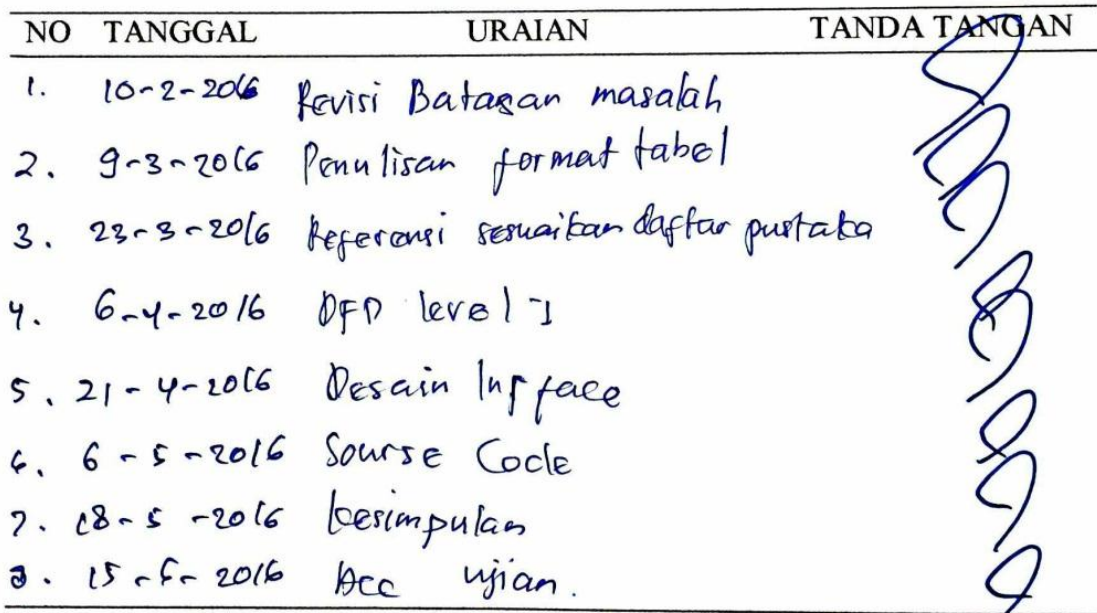 NO TANGGAL URAIAN TANDA TANGAN
1. 10-2-2016 Revisi Batasan masalah
2. 9-3-2016 Penulisan format tabel
3. 23-3-2016 Referensi sesuaikan daftar pustaka
4. 6-4-2016 DFD level 1
5. 21-4-2016 Desain
6. 6-5-2016 Sourse Code
7. 18-5-2016 kesimpulan
8. 15-6-2016 Acc ujian.